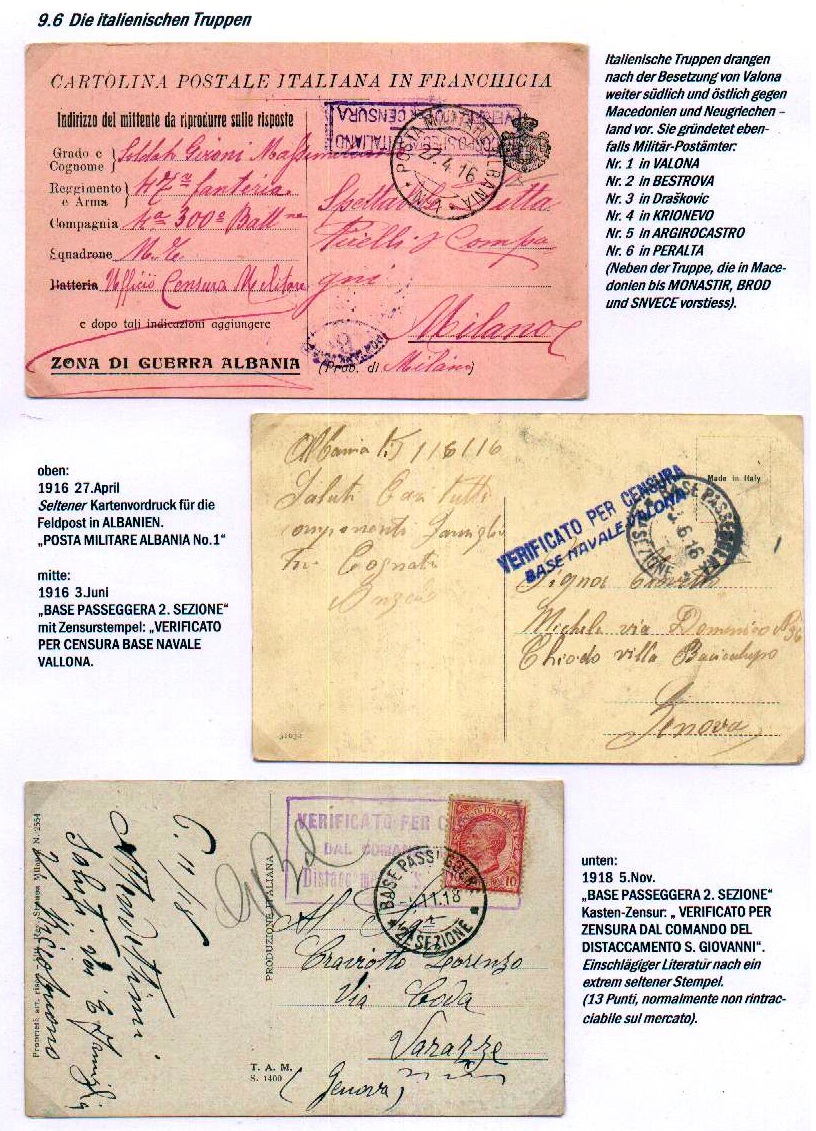 9.6 Die italienischen Truppen
CARTOLINA POSTALE ITALIANA IN FRANCHIGIA
Indirizzo del mittente da riprodurre sulle risposte
Grado e Cognome Soldato Gironi Massimino
Reggimento e Arma 47ª fanteria
Compagnia 4ª 300ª Battne
Squadrone M.T.
Batteria Ufficio Censura Militare
e dopo tali indicazioni aggiungere
ZONA DI GUERRA ALBANIA
CENSURA
ITALIANO
POSTA MILITARE ALBANIA
27.4.16
Spettabile Ditta
Pirelli & Compa
gni
Milano
(Prov. di Milano)
Italienische Truppen drangen
nach der Besetzung von Valona
weiter südlich und östlich gegen
Macedonien und Neugriechen –
land vor. Sie gründetet eben-
falls Militär-Postämter:
Nr. 1 in VALONA
Nr. 2 in BESTROVA
Nr. 3 in Draškovic
Nr. 4 in KRIONEVO
Nr. 5 in ARGIROCASTRO
Nr. 6 in PERALTA
(Neben der Truppe, die in Mace-
donien bis MONASTIR, BROD
und SNVECE vorstiess).
oben:
1916 27.April
Seltener Kartenvordruck für die
Feldpost in ALBANIEN.
„POSTA MILITARE ALBANIA No.1“
mitte:
1916 3.Juni
„BASE PASSEGGERA 2. SEZIONE“
mit Zensurstempel: „VERIFICATO
PER CENSURA BASE NAVALE
VALLONA.
Albania li 1/6/16
Saluti Cari tutti
componenti famiglia
Cognati
VERIFICATO PER CENSURA
BASE NAVALE VALONA
Made in Italy
BASE PASSEGGERA
6.16
SEZIONE
Signor
Michele via Domenico N 36
Chiodo villa Bacicalupo
Genova
unten:
1918 5.Nov.
„BASE PASSEGGERA 2. SEZIONE“
Kasten-Zensur: „ VERIFICATO PER
ZENSURA DAL COMANDO DEL
DISTACCAMENTO S. GIOVANNI“.
Einschlägiger Literatur nach ein
extrem seltener Stempel.
(13 Punti, normalmente non rintrac-
ciabile sul mercato).
Propriet. art. ris. Stampa Milano N. 2554
6.11/18
Saluti voi e famiglia
PRODUZIONE ITALIANA
VERIFICATO PER
DAL COMAN
Distaccam
POSTE ITALIANE
10
BASE PASSEGGERA
11.18
2ª SEZIONE
Al Sigr
Craviotto Lorenzo
Via Coda
Varazze
(Genova)
T. A. M.
S. 1400